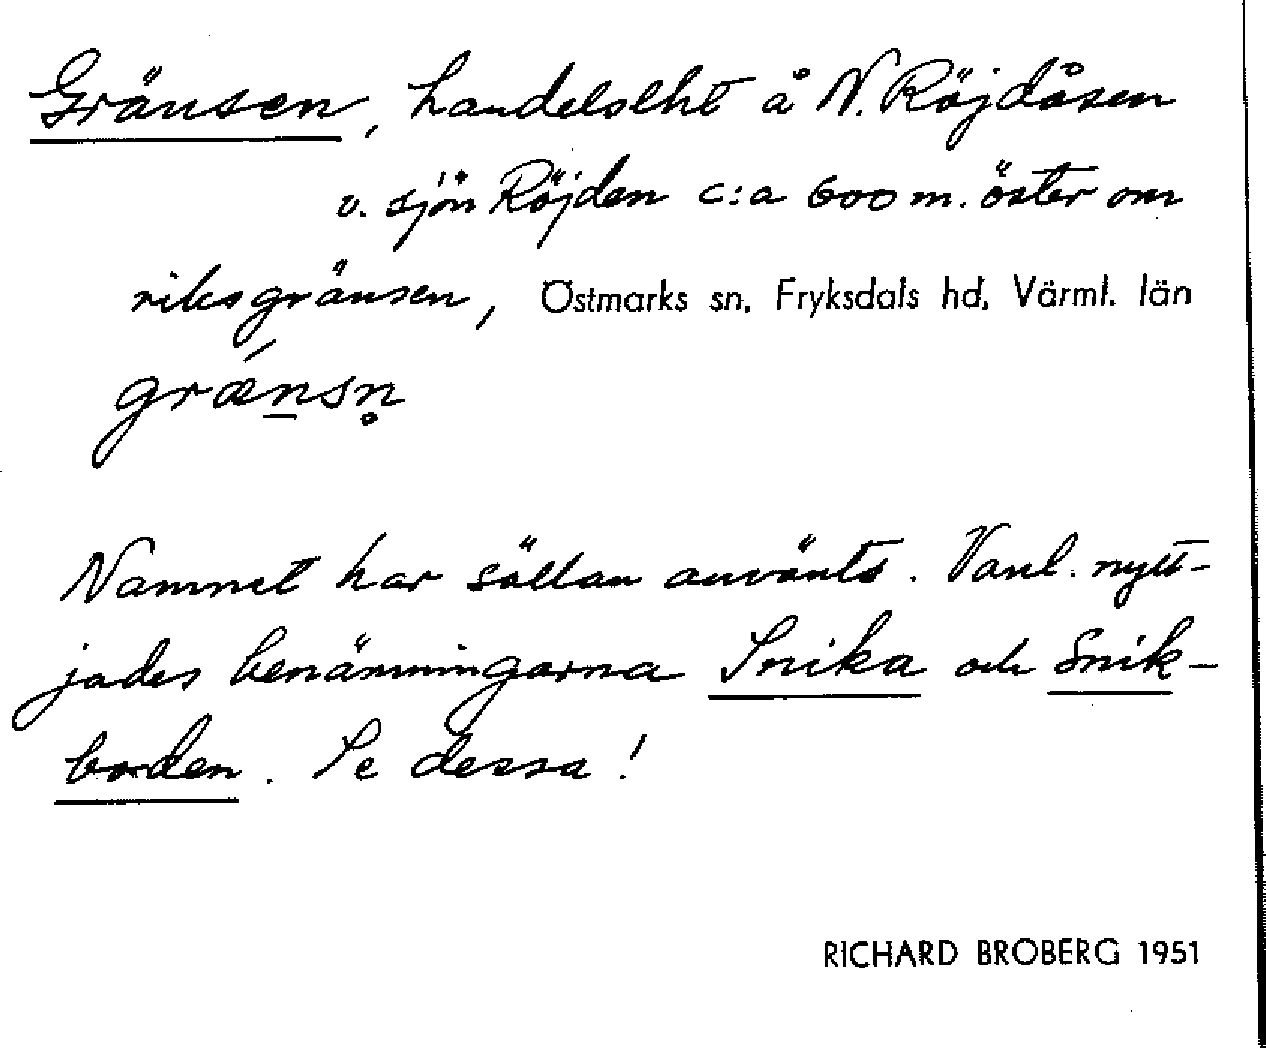 Gränsen, handelslht å N. Röjdåsen
v. sjön Röjden c:a 600 m. öster om
riksgränsen, Östmarks sn, Fryksdals hd, Värml. län
grǽn̠sn̥
Namnet har sällan använts. Vanl. nytt-
jades benämningarna Snika och Snik-
boden. Se dessa!
RICHARD BROBERG 1951